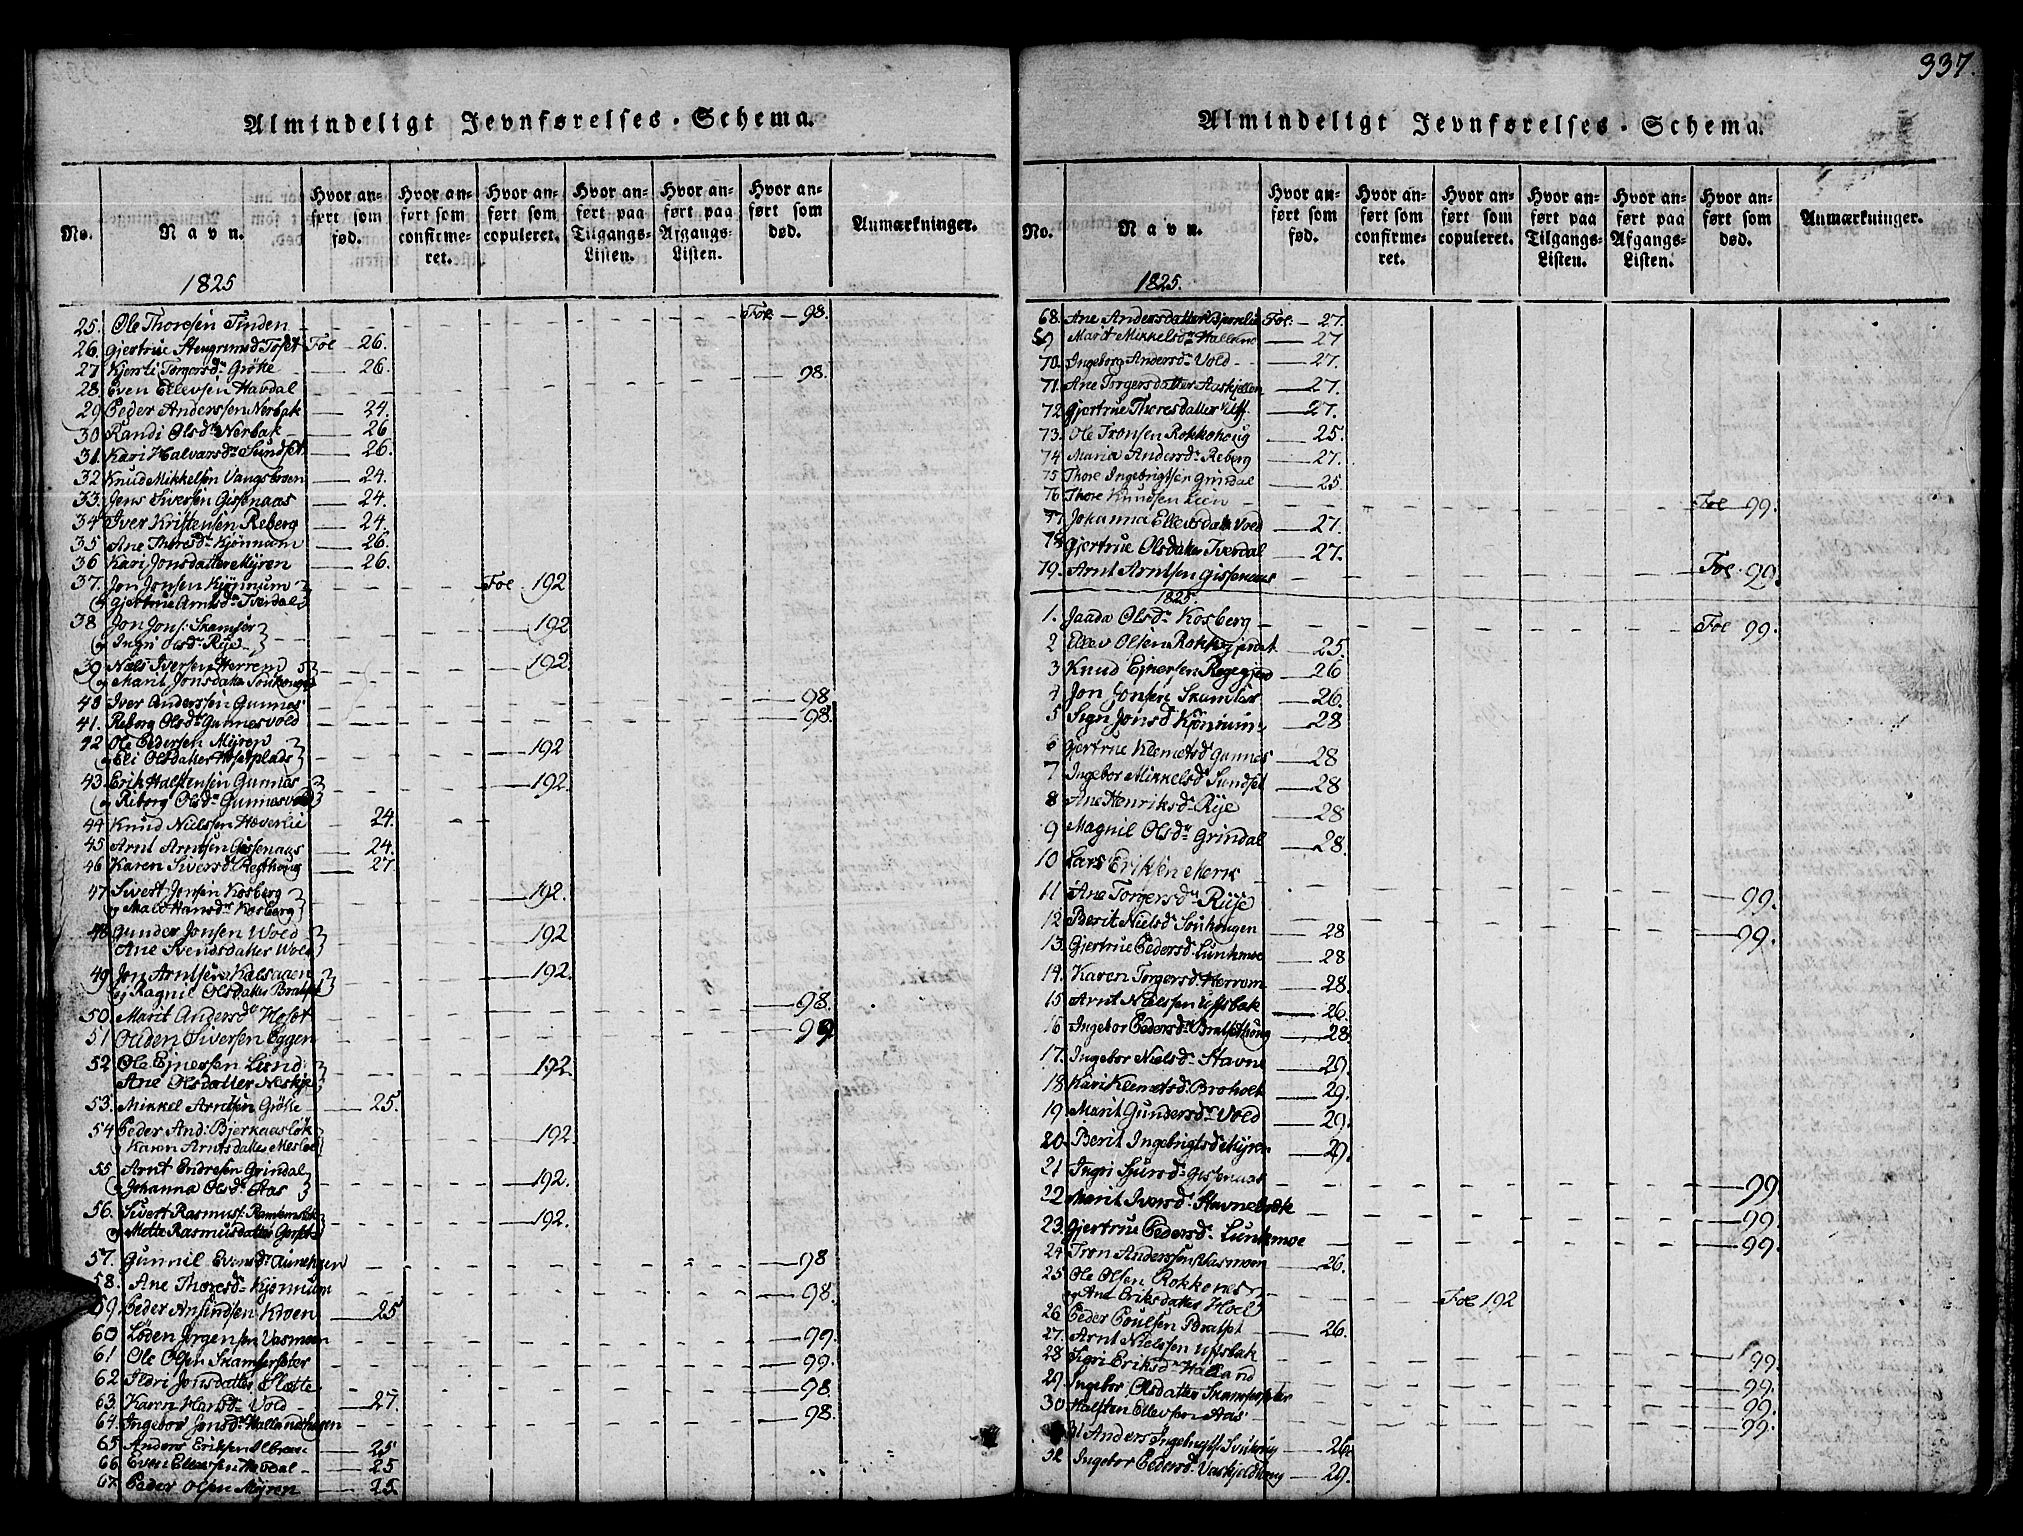 337.
Almindeligt Jevnførelses-Schema.
No.
Navn.
Hvor anført som fød.
Hvor anført som confirmeret.
Hvor anført som copuleret.
Hvor anført paa Tilgangs-Listen.
Hvor anført paa Afgangs-Listen.
Hvor anført som død.
Anmærkninger.
1825
25. Ole Thoresen Tinden Fol 98.
26. Gjertrue Stengrimsd. Tosæt Fol 26.
27 Kjersti Torgersdr Grötte 26.
28. Even Ellevsen Havdal 98.
29 Peder Anderssen Nerbak 24.
30 Randi Olsdr Nerbak 26
31. Kari Halvarsdr Sundset 26.
32 Knud Mikkelsen Vangsbroen 24.
33. Jens Siversen Gissenaas 24.
34 Iver Kristensen Reberg 24.
35 Ane Thoresdr Kjönnum 26.
36 Kari Jonsdatter Myren 26.
37. Jon Jonsen Kjönnum Fol 192
og Gjertrue Arntsdr Tverdal
38 Jon Jons: Skamsör 192
og Ingri Olsdr Rye
39 Niels Iversen Herrem 192
og Marit Jonsdatter
40 Iver Anderssen Gunnes 98
41. Reborg Olsdr Gunnesvold 98.
42 Ole Pedersen Myren 192
og Eli Olsdatter Hosetplads
43 Erik Halstensen Gunnas 192.
og Reborg Olsdr Gunnesvold
44 Knud Nielssen Hæverlie 24.
45 Arnt Arntsen Gissenaas 24.
46 Karen Siversdr Regthoug 27.
47 Sivert Jonsen Kosberg 192.
og Malo Hansdr Kosberg
48 Gunder Jonsen Wold 192
Ane Svendsdatter Wold
49 Jon Arntsen Kalsaaen 192.
og Ragnil Olsdatter Bralset
50 Marit Andersdr Hoset 98.
51 Ouden Siversen Eggen 99
52 Ole Ejnersen Lund 192.
Ane Olsdatter
53. Mikkel Arntsen Grötte 25.
54 Peder And: Bjerkaasløk 192.
og Karen Arntsdatter Mesloe
55 Arnt Endresen Grindal 192.
og Johanna Olsdr Aas
56. Sivert Rasmuss: 192.
og Mette Rasmusdatter
57. Gunnil Evensdr 98
58. Ane Thoresdr Kjönnum 98.
59. Peder Amundsen Kroen 25
60 Löden Jörgensen Vasmoen 99.
61 Ole Olsen Skamfersæter 99.
62 Ildri Jonsdatter Slette 98.
63. Karen Hansdr Vold 27.
64. Ingebor Jonsdr Hallandhagen 98.
65. Anders Eriksen 25
66 Even Ellevsen Havdal 25
67 Peder Olsen Myren 25
Almindeligt Jevnførelses-Schema.
No.
Navn.
Hvor anført som fød.
Hvor anført som confirmeret.
Hvor anført som copuleret.
Hvor anført paa Tilgangs-Listen.
Hvor anført paa Afgangs-Listen.
Hvor anført som død.
Anmærkninger.
1825.
68. Ane Andersdatter Bjerklie Fol. 27.
69 Marit Mikkelsdr 27
70. Ingeborg Andersdr Vold 27.
71. Ane Torgersdatter Aaskjellen 27.
72 Gjertrue Thoresdatter 27.
73. Ole Tronsen Rokkohoug 25.
74 Maria Andersdr Reberg 27.
75 Thore Ingebrigtsen Grindal 25
76 Thore Knudsen Lien Fol 99.
77. Johanna Ellevsdatter Vold 27.
78 Gjertrue Olsdatter Tverdal 27.
79. Arnt Arntsen Gissenaas Fol 99.
1825.
1. Jaada Olsdr Kosberg Fol 99.
2 Ellev Olsen 25.
3 Knud Ejnersen 26
4 Jon Jonsen 26.
5 Sign Jonsdr Kjönnum 28
6 Gjertrue Klemetsdr Gunnes 28
7 Ingebor Mikkelsdr Sundset 28
8 Ane Henriksdr Rye 28
9 Magnil Olsdr Grindal 28.
10 Lars Eriksen Merk 99.
11 Ane Torgersdr Rye 99.
12 Berit Nielsdr 28
13. Gjertrue Pedersdr Lunkmoe 28
14. Karen Torgersdr Herrem 28.
15 Arnt Nielssen Uftsbak 26.
16 Ingebor Pedersdr Bralsethoug 28
17. Ingebor Nielsdr Stavne 29.
18 Kari Klemetsdr Broholt 29.
19 Marit Gundersdr Vold 29.
20. Berit Ingebrigtsdr Myren 29.
21 Ingri Sjursdr Gissenaas 99.
22 Marit Iversdr 99.
23. Gjertrue Pedersdr Lunkmoe 99.
24 Tron Anderssen Vasmoen 26.
25 Ole Olsen Rokkones Fol 192
og Ane Eriksdatter Hoel
26 Peder Poulsen Bralset 26.
27. Arnt Nielssen Uftsbak 99.
28 Sigri Eriksdr Halland 99.
29 Ingebor Olsdatter Skamfersæter 99.
30 Halsten Ellevsen Aas 99.
31 Anders Ingebrigts: 26.
32 Ingebor Pedersdr 29.